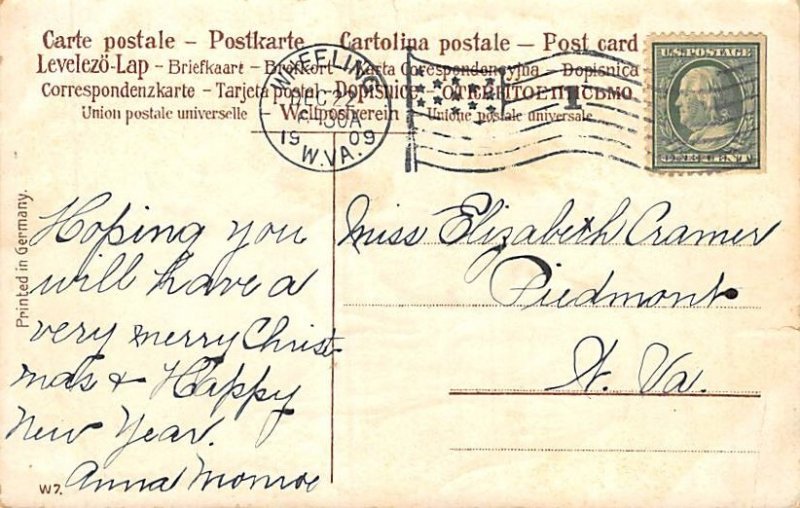 Carte postale – Postkarte – Cartolina postale – Post card
Levelező-Lap – Briefkaart – Brefkort – Karta Corespondencyjna – Dopisnica
Correspondenzkarte – Tarjeta postal – Dopisnice – ОТКРЫТОЕ ПИСЬМО
Union postale universelle – Weltpostverein – Unione postale universale
WHEELING
DEC 22
30A
1909
W. VA.
1
U.S. POSTAGE
ONE CENT
Printed in Germany.
Hoping you
will have a
very merry Christ
mas & Happy
New Year.
Anna Monroe
Miss Elizabeth Cramer
Piedmont
W. Va.
W7.